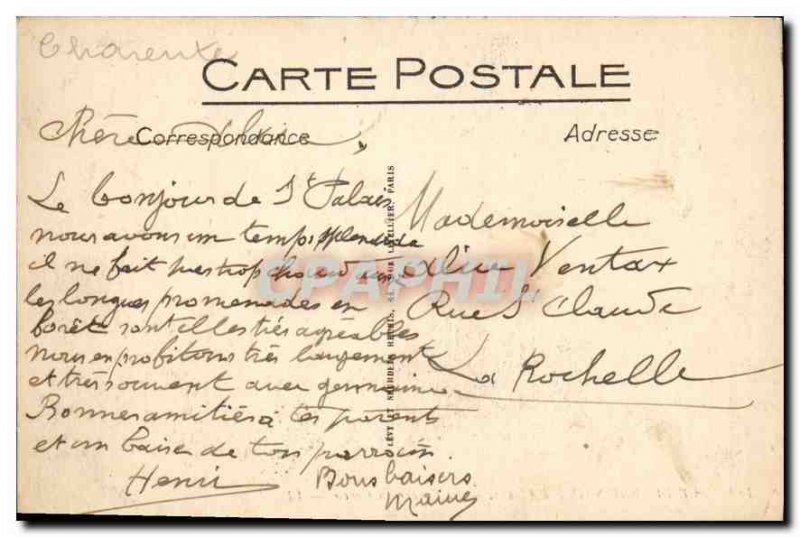 Charente
CARTE POSTALE
Correspondance
Adresse
Chère
Le bonjour de St Palais
nous avons un temps splendide
il ne fait pas trop chaud
les longues promenades en
forêt sont elles très agréables
nous en profitons très largement
et très souvent avec germaine
Bonnes amitiés à tes parents
et un baise de ton parrain
Henri
Bons baisers
Mademoiselle
Ventax
Rue St Claude
La Rochelle
CPAPHIL
PARIS